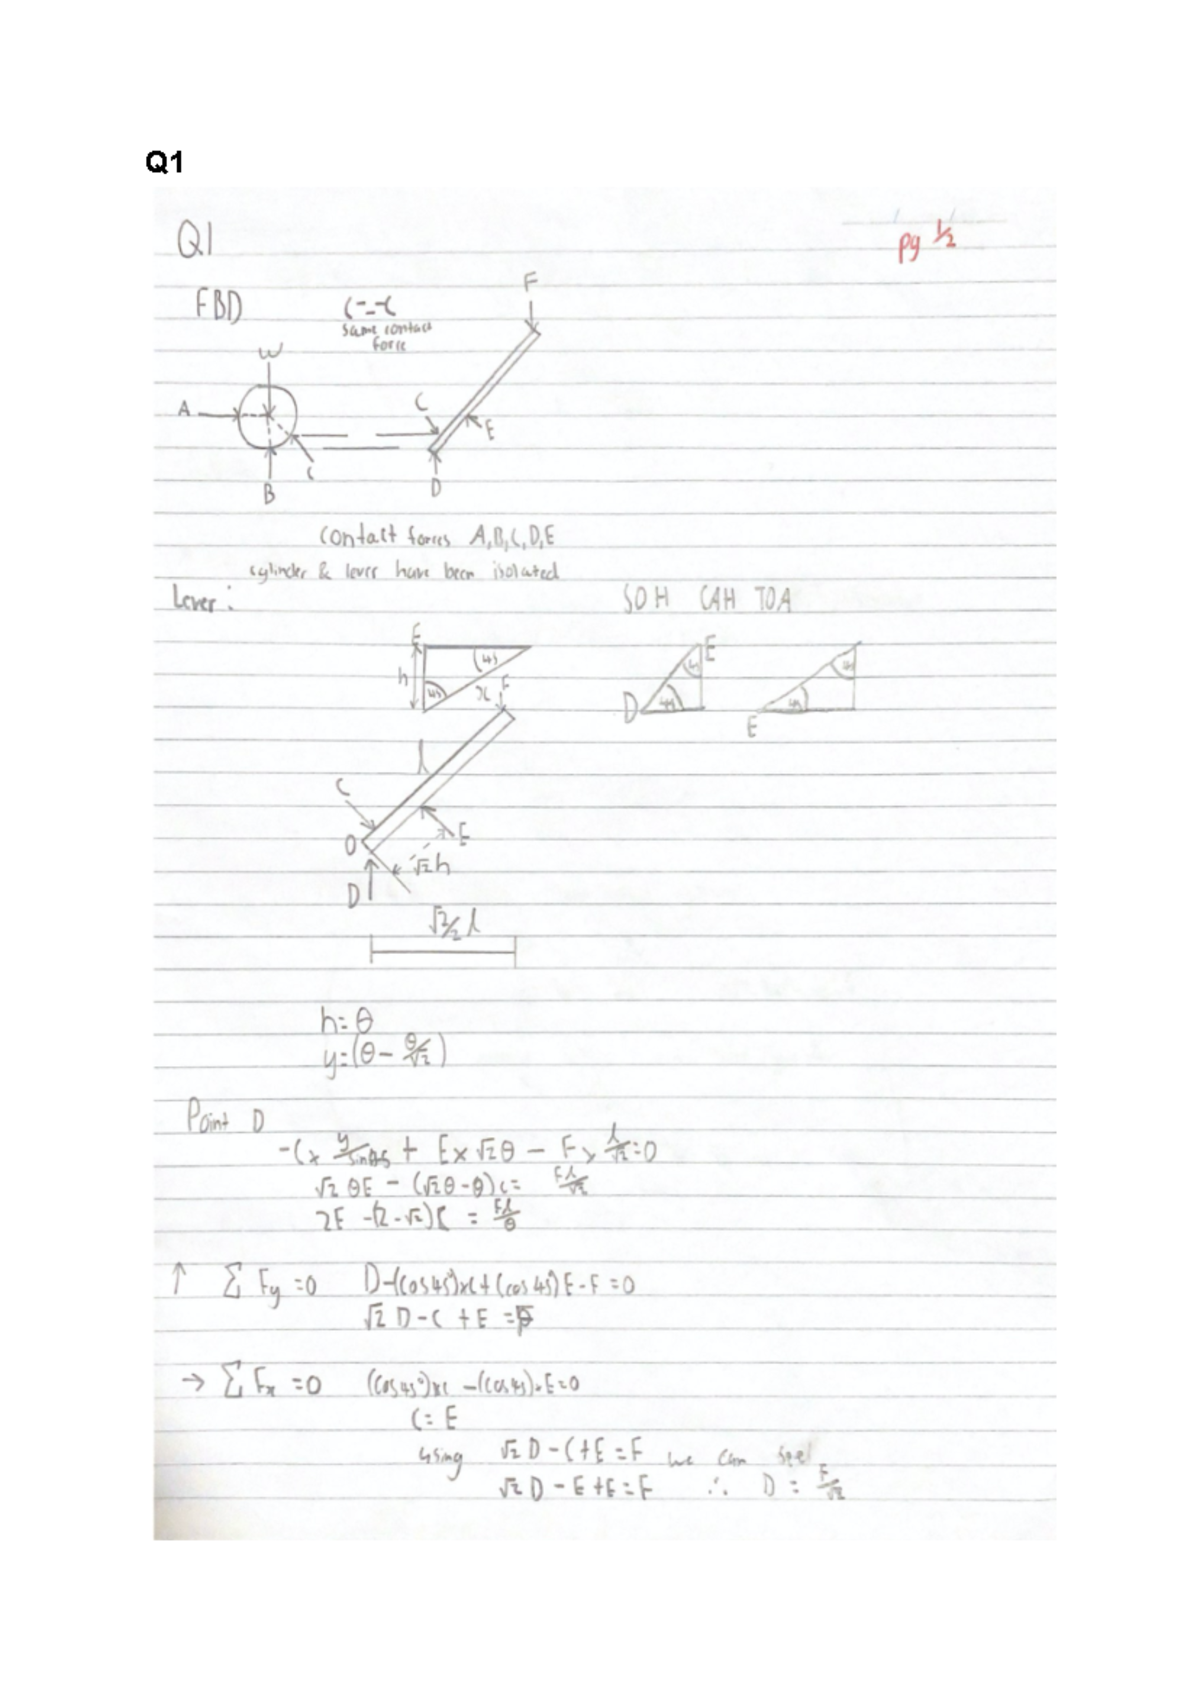 Q1
Q1
pg 1/2
FBD
C = -C
same contact
force
F
W
A
C
E
C
B
D
contact forces A,B,C,D,E
cylinder & lever have been isolated
Lever:
SOH CAH TOA
E
45
h
45
x
F
E
45
D
45
45
45
E
l
C
O
E
√2h
D
√2/2 l
h=θ
y=(θ- θ/√2)
Point D
-C× y/sin45 + E×√2θ - F× l/√2=0
√2θE - (√2θ-θ)C= Fl/√2
2E -(2-√2)C = Fl/θ
↑ ΣFy=0 D-(cos45°)×C+(cos45°)E-F=0
√2 D-C+E=F
→ ΣFx=0 (cos45°)×C-(cos45)×E=0
C=E
using √2D-C+E=F we can
√2D-E+E=F ∴ D = F/√2